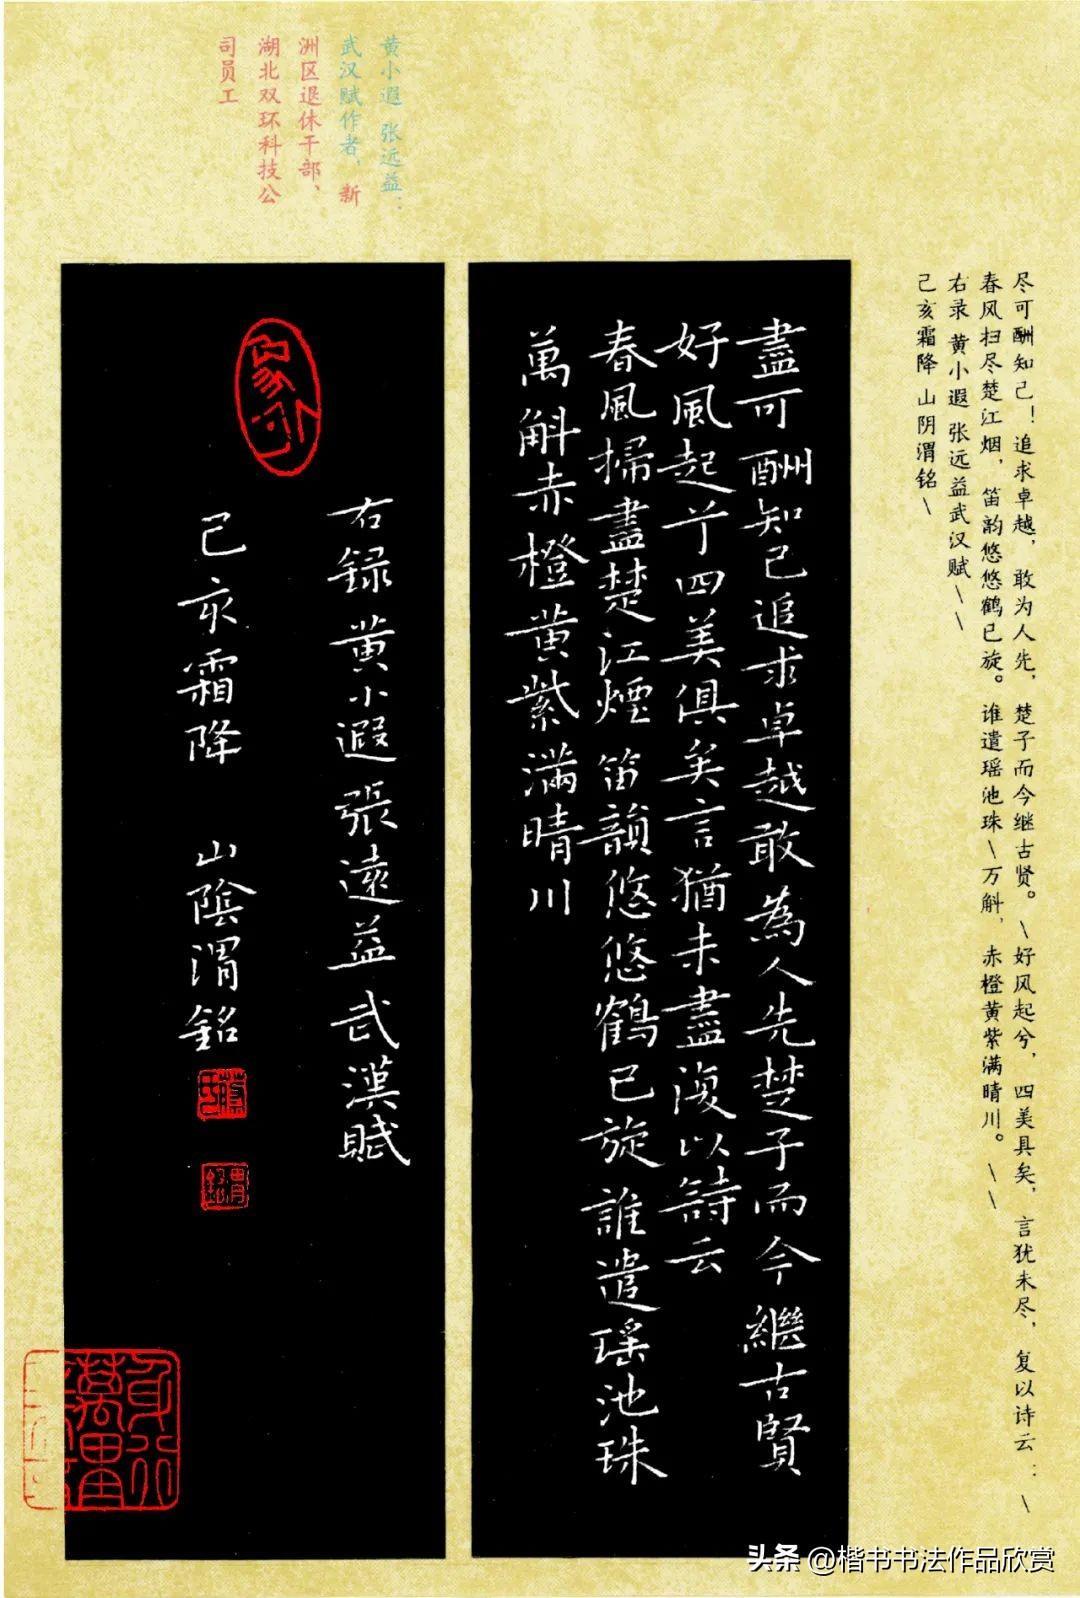 尽可酬知己！追求卓越，敢为人先，楚子而今继古贤。\好风起兮，四美具矣，言犹未尽，复以诗云：\
春风扫尽楚江烟，笛韵悠悠鹤已旋。谁遣瑶池珠\万斛，赤橙黄紫满晴川。\\
右录 黄小遐 张远益武汉赋\\
己亥霜降 山阴渭铭\
盡可酬知己追求卓越敢為人先楚子而今繼古賢
好風起兮四美俱矣言猶未盡復以詩云
春風掃盡楚江煙笛韻悠悠鶴已旋誰遣瑤池珠
萬斛赤橙黄紫滿晴川
右録黄小遐張遠益武漢賦
己亥霜降 山陰渭銘
黄小遐 张远益：
武汉赋作者，新
洲区退休干部，
湖北双环科技公
司员工
头条 @楷书书法作品欣赏